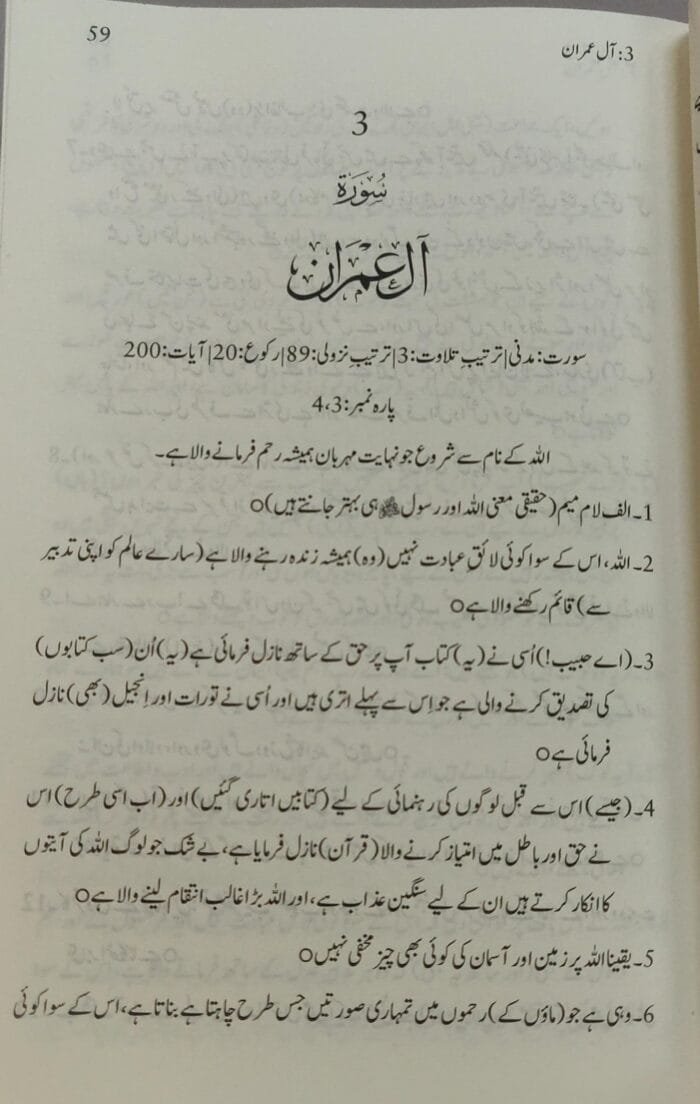 59
3: آل عمران
3
سُوْرَةُ
آل عِمْرَان
سورت: مدنی|ترتیبِ تلاوت: 3|ترتیبِ نزولی: 89|رکوع: 20|آیات: 200
پارہ نمبر: 3، 4
اللہ کے نام سے شروع جو نہایت مہربان ہمیشہ رحم فرمانے والا ہے۔
1۔ الف لام میم (حقیقی معنی اللہ اور رسول ﷺ ہی بہتر جانتے ہیں)o
2۔ اللہ، اس کے سوا کوئی لائقِ عبادت نہیں (وہ) ہمیشہ زندہ رہنے والا ہے (سارے عالم کو اپنی تدبیر
سے) قائم رکھنے والا ہےo
3۔ (اے حبیب!) اُسی نے (یہ) کتاب آپ پر حق کے ساتھ نازل فرمائی ہے (یہ) اُن (سب کتابوں)
کی تصدیق کرنے والی ہے جو اِس سے پہلے اتری ہیں اور اُسی نے تورات اور اِنجیل (بھی) نازل
فرمائی ہےo
4۔ (جیسے) اس سے قبل لوگوں کی رہنمائی کے لیے (کتابیں اتاری گئیں) اور (اب اسی طرح) اس
نے حق اور باطل میں امتیاز کرنے والا (قرآن) نازل فرمایا ہے، بے شک جو لوگ اللہ کی آیتوں
کا انکار کرتے ہیں ان کے لیے سنگین عذاب ہے، اور اللہ بڑا غالب انتقام لینے والا ہےo
5۔ یقینا اللہ پر زمین اور آسمان کی کوئی بھی چیز مخفی نہیںo
6۔ وہی ہے جو (ماؤں کے) رحموں میں تمہاری صورتیں جس طرح چاہتا ہے بناتا ہے، اس کے سوا کوئی